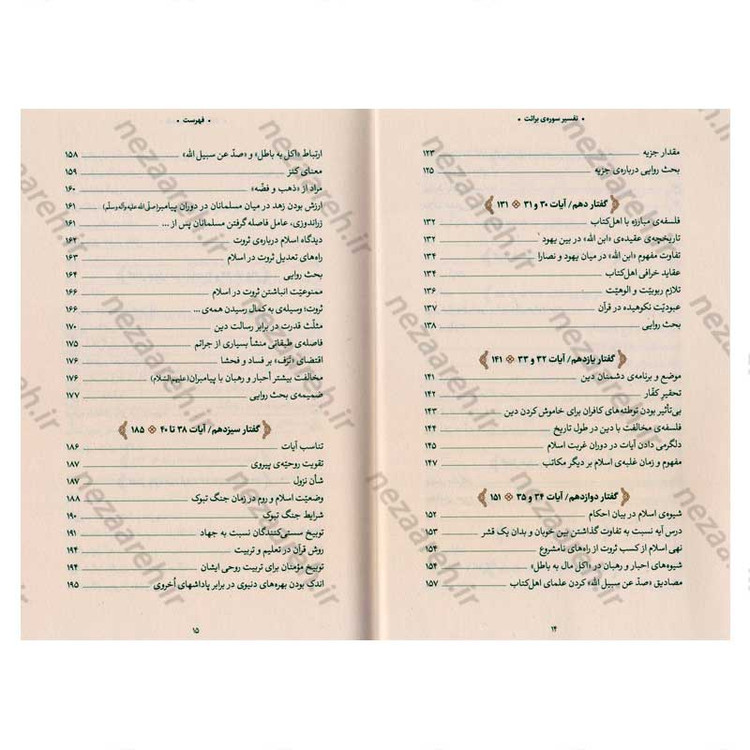 • تفسیر سوره‌ی برائت •
مقدار جزیه ۱۲۳
بحث روایی درباره‌ی جزیه ۱۲۵
گفتار دهم/ آیات ۳۰ و ۳۱ ۱۳۱
فلسفه‌ی مبارزه با اهل‌کتاب ۱۳۲
تاریخچه‌ی عقیده‌ی «ابن الله» در بین یهود ۱۳۲
تفاوت مفهوم «ابن الله» در میان یهود و نصارا ۱۳۴
عقاید خرافی اهل‌کتاب ۱۳۴
تلازم ربوبیّت و الوهیّت ۱۳۶
عبودیّت نکوهیده در قرآن ۱۳۷
بحث روایی ۱۳۸
گفتار یازدهم/ آیات ۳۲ و ۳۳ ۱۴۱
موضع و برنامه‌ی دشمنان دین ۱۴۱
تحقیر کفّار ۱۴۲
بی‌تأثیر بودن توطئه‌های کافران برای خاموش کردن دین ۱۴۳
فلسفه‌ی مخالفت با دین در طول تاریخ ۱۴۴
دلگرمی دادن آیات در دوران غربت اسلام ۱۴۵
مفهوم و زمان غلبه‌ی اسلام بر دیگر مکاتب ۱۴۷
گفتار دوازدهم/ آیات ۳۴ و ۳۵ ۱۵۱
شیوه‌ی اسلام در بیان احکام ۱۵۲
درس آیه نسبت به تفاوت گذاشتن بین خوبان و بدان یک قشر ۱۵۳
نهی اسلام از کسب ثروت از راه‌های نامشروع ۱۵۴
شیوه‌های احبار و رهبان در «اکل مال به باطل» ۱۵۴
مصادیق «صدّ عن سبیل الله» کردن علمای اهل‌کتاب ۱۵۷
۱۴
• فهرست •
ارتباط «اکل به باطل» و «صدّ عن سبیل الله» ۱۵۸
معنای کنز ۱۵۹
مراد از «ذهب و فضّه» ۱۶۰
ارزش بودن زهد در میان مسلمانان در دوران پیامبر(صلّی‌الله‌علیه‌وآله‌وسلّم) ۱۶۱
زراندوزی، عامل فاصله گرفتن مسلمانان پس از ... ۱۶۱
دیدگاه اسلام درباره‌ی ثروت ۱۶۲
راه‌های تعدیل ثروت در اسلام ۱۶۳
بحث روایی ۱۶۴
ممنوعیّت انباشتن ثروت در اسلام ۱۶۶
ثروت؛ وسیله‌ی به کمال رسیدن همه‌ی ... ۱۶۶
مثلّث قدرت در برابر رسالت دین ۱۷۰
فاصله‌ی طبقاتی منشأ بسیاری از جرائم ۱۷۵
اقتضای «تَرَف» بر فساد و فحشا ۱۷۶
مخالفت بیشتر أحبار و رهبان با پیامبران(علیهم‌السّلام) ۱۷۶
ضمیمه‌ی بحث روایی ۱۷۷
گفتار سیزدهم/ آیات ۳۸ تا ۴۰ ۱۸۵
تناسب آیات ۱۸۶
تقویت روحیّه‌ی پیروی ۱۸۷
شأن نزول ۱۸۷
وضعیّت اسلام و روم در زمان جنگ تبوک ۱۸۸
شرایط جنگ تبوک ۱۹۰
توبیخ سستی‌کنندگان نسبت به جهاد ۱۹۱
روش قرآن در تعلیم و تربیت ۱۹۴
توبیخ مؤمنان برای تربیت روحی ایشان ۱۹۴
اندک بودن بهره‌های دنیوی در برابر پاداشهای اُخروی ۱۹۵
۱۵
nezaareh.ir